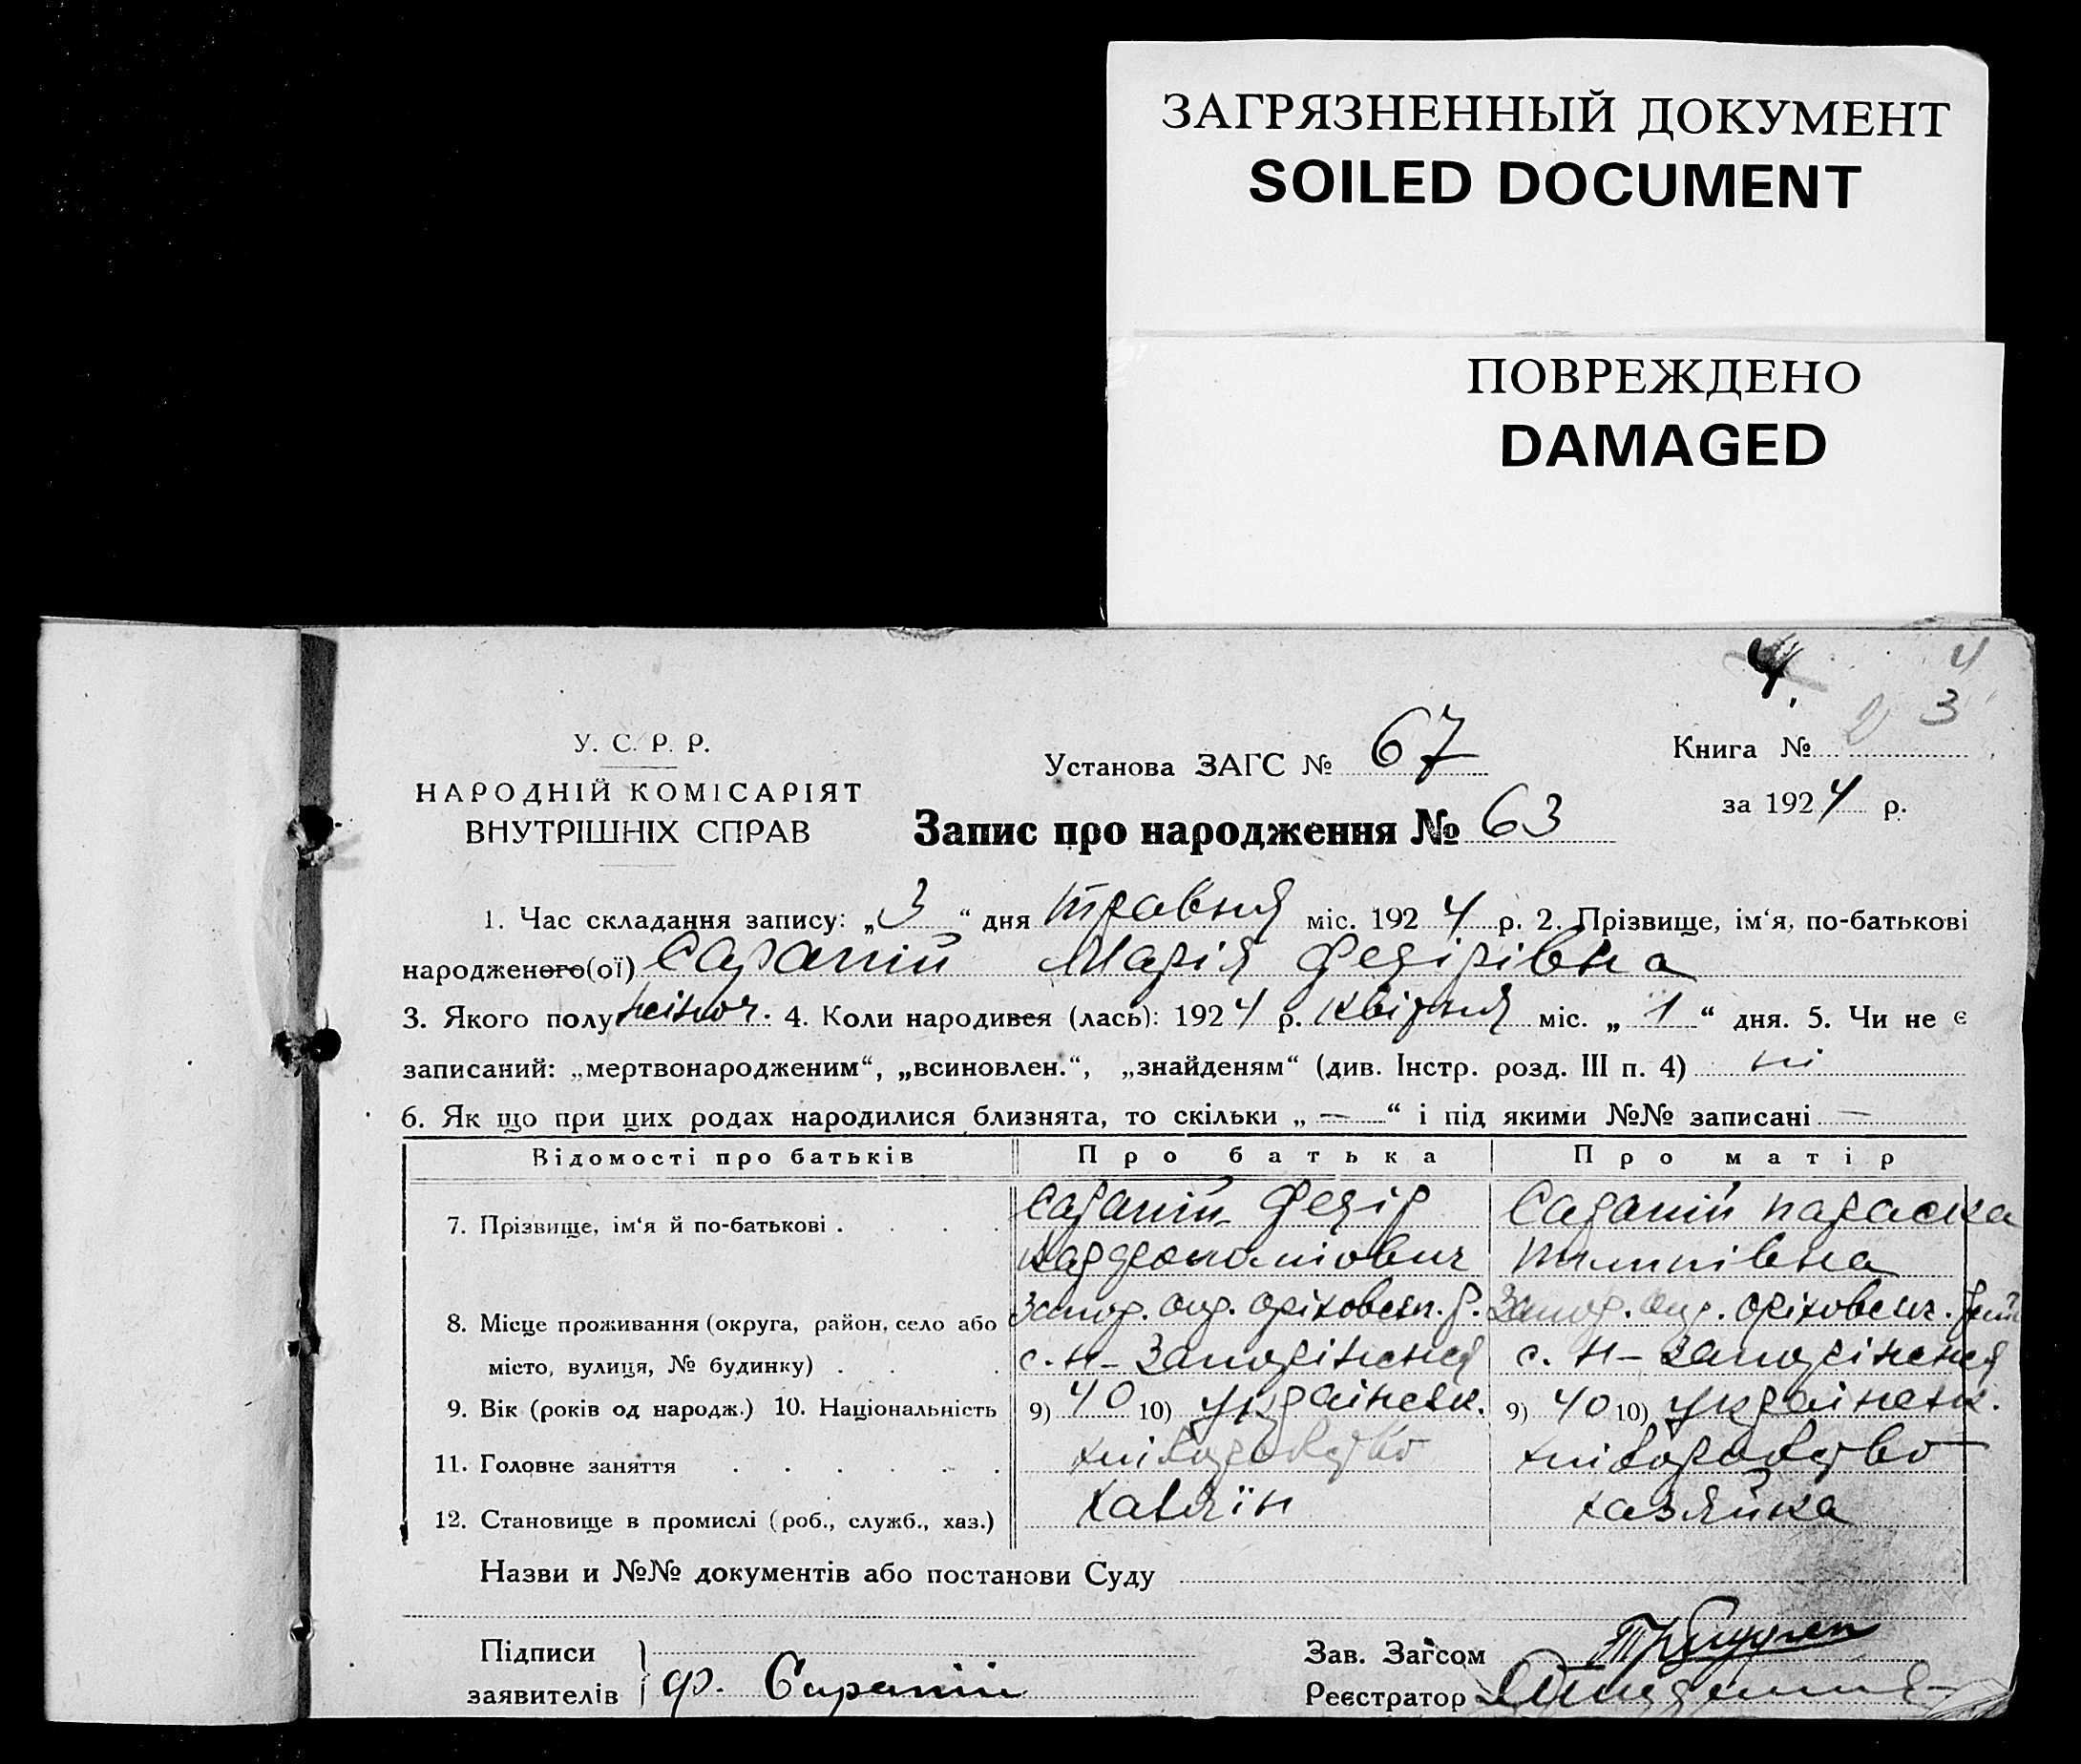 ЗАГРЯЗНЕННЫЙ ДОКУМЕНТ
SOILED DOCUMENT
ПОВРЕЖДЕНО
DAMAGED
4
4.
3
У. С. Р. Р.
НАРОДНІЙ КОМІСАРІЯТ
ВНУТРІШНІХ СПРАВ
Установа ЗАГС № 67
Книга № 2
за 1924 р.
Запис про народження № 63
1. Час складання запису: „3“ дня травня міс. 1924 р. 2. Прізвище, ім‘я, по-батькові
народженого(ої) Сараній Марія Федірівна
3. Якого полу жіноч. 4. Коли народився (лась): 1924 р. квітня міс. „1“ дня. 5. Чи не є
записаний: „мертвонародженим“, „всиновлен.“, „знайденям“ (див. Інстр. розд. III п. 4) ні
6. Як що при цих родах народилися близнята, то скільки „—“ і під якими №№ записані —
Відомості про батьків Про батька Про матір
7. Прізвище, ім‘я й по-батькові . . . . Сараній Федір Сараній Параска
8. Місце проживання (округа, район, село або Запор. окр. Оріховськ. р. Запор. окр. Оріховськ.
місто, вулиця, № будинку) . . . с. Н-Запоріжжя с. Н-Запоріжжя
9. Вік (років од народж.) 10. Національність 9) 40 10) українськ. 9) 40 10) українськ.
11. Головне заняття . . . . . . хліборобство хліборобство
12. Становище в промислі (роб., служб., хаз.) хазяїн хазяйка
Назви и №№ документів або постанови Суду
Підписи
заявителів ф. Сараній
Зав. Загсом
Реєстратор